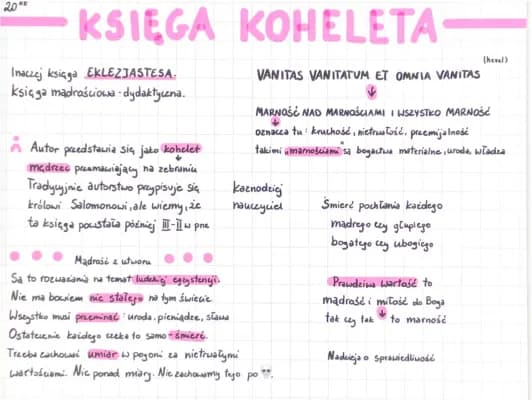 20
KSIĘGA KOHELETA
Inaczej księga EKLEZJASTESA.
księga mądrościowa - dydaktyczna.
(hevel)
VANITAS VANITATUM ET OMNIA VANITAS
MARNOŚĆ NAD MARNOŚCIAMI I WSZYSTKO MARNOŚĆ
oznacza tu: kruchość, nietrwałość, przemijalność
takimi "marnościami" są bogactwa materialne, uroda, władza
Autor przedstawia się jako kohelet
mędrzec przemawiający na zebraniu
Tradycyjnie autorstwo przypisuje się
królowi Salomonowi, ale wiemy, że
ta księga powstała później III-II w pne
kaznodziej
nauczyciel
Śmierć pochłania każdego
mądrego czy głupiego
bogatego czy ubogiego
Mądrość z utworu
Są to rozważania na temat ludzkiej egzystencji.
Nie ma bowiem nic stałego na tym świecie
Wszystko musi przeminąć: uroda, pieniądze, sława
Ostatecznie każdego czeka to samo - śmierć.
Trzeba zachować umiar w pogoni za nietrwałymi
wartościami. Nic ponad miarę. Nic zachowamy tego po
Prawdziwa wartość to
mądrość i miłość do Boga
tak czy tak to marność
Nadzieja o sprawiedliwość